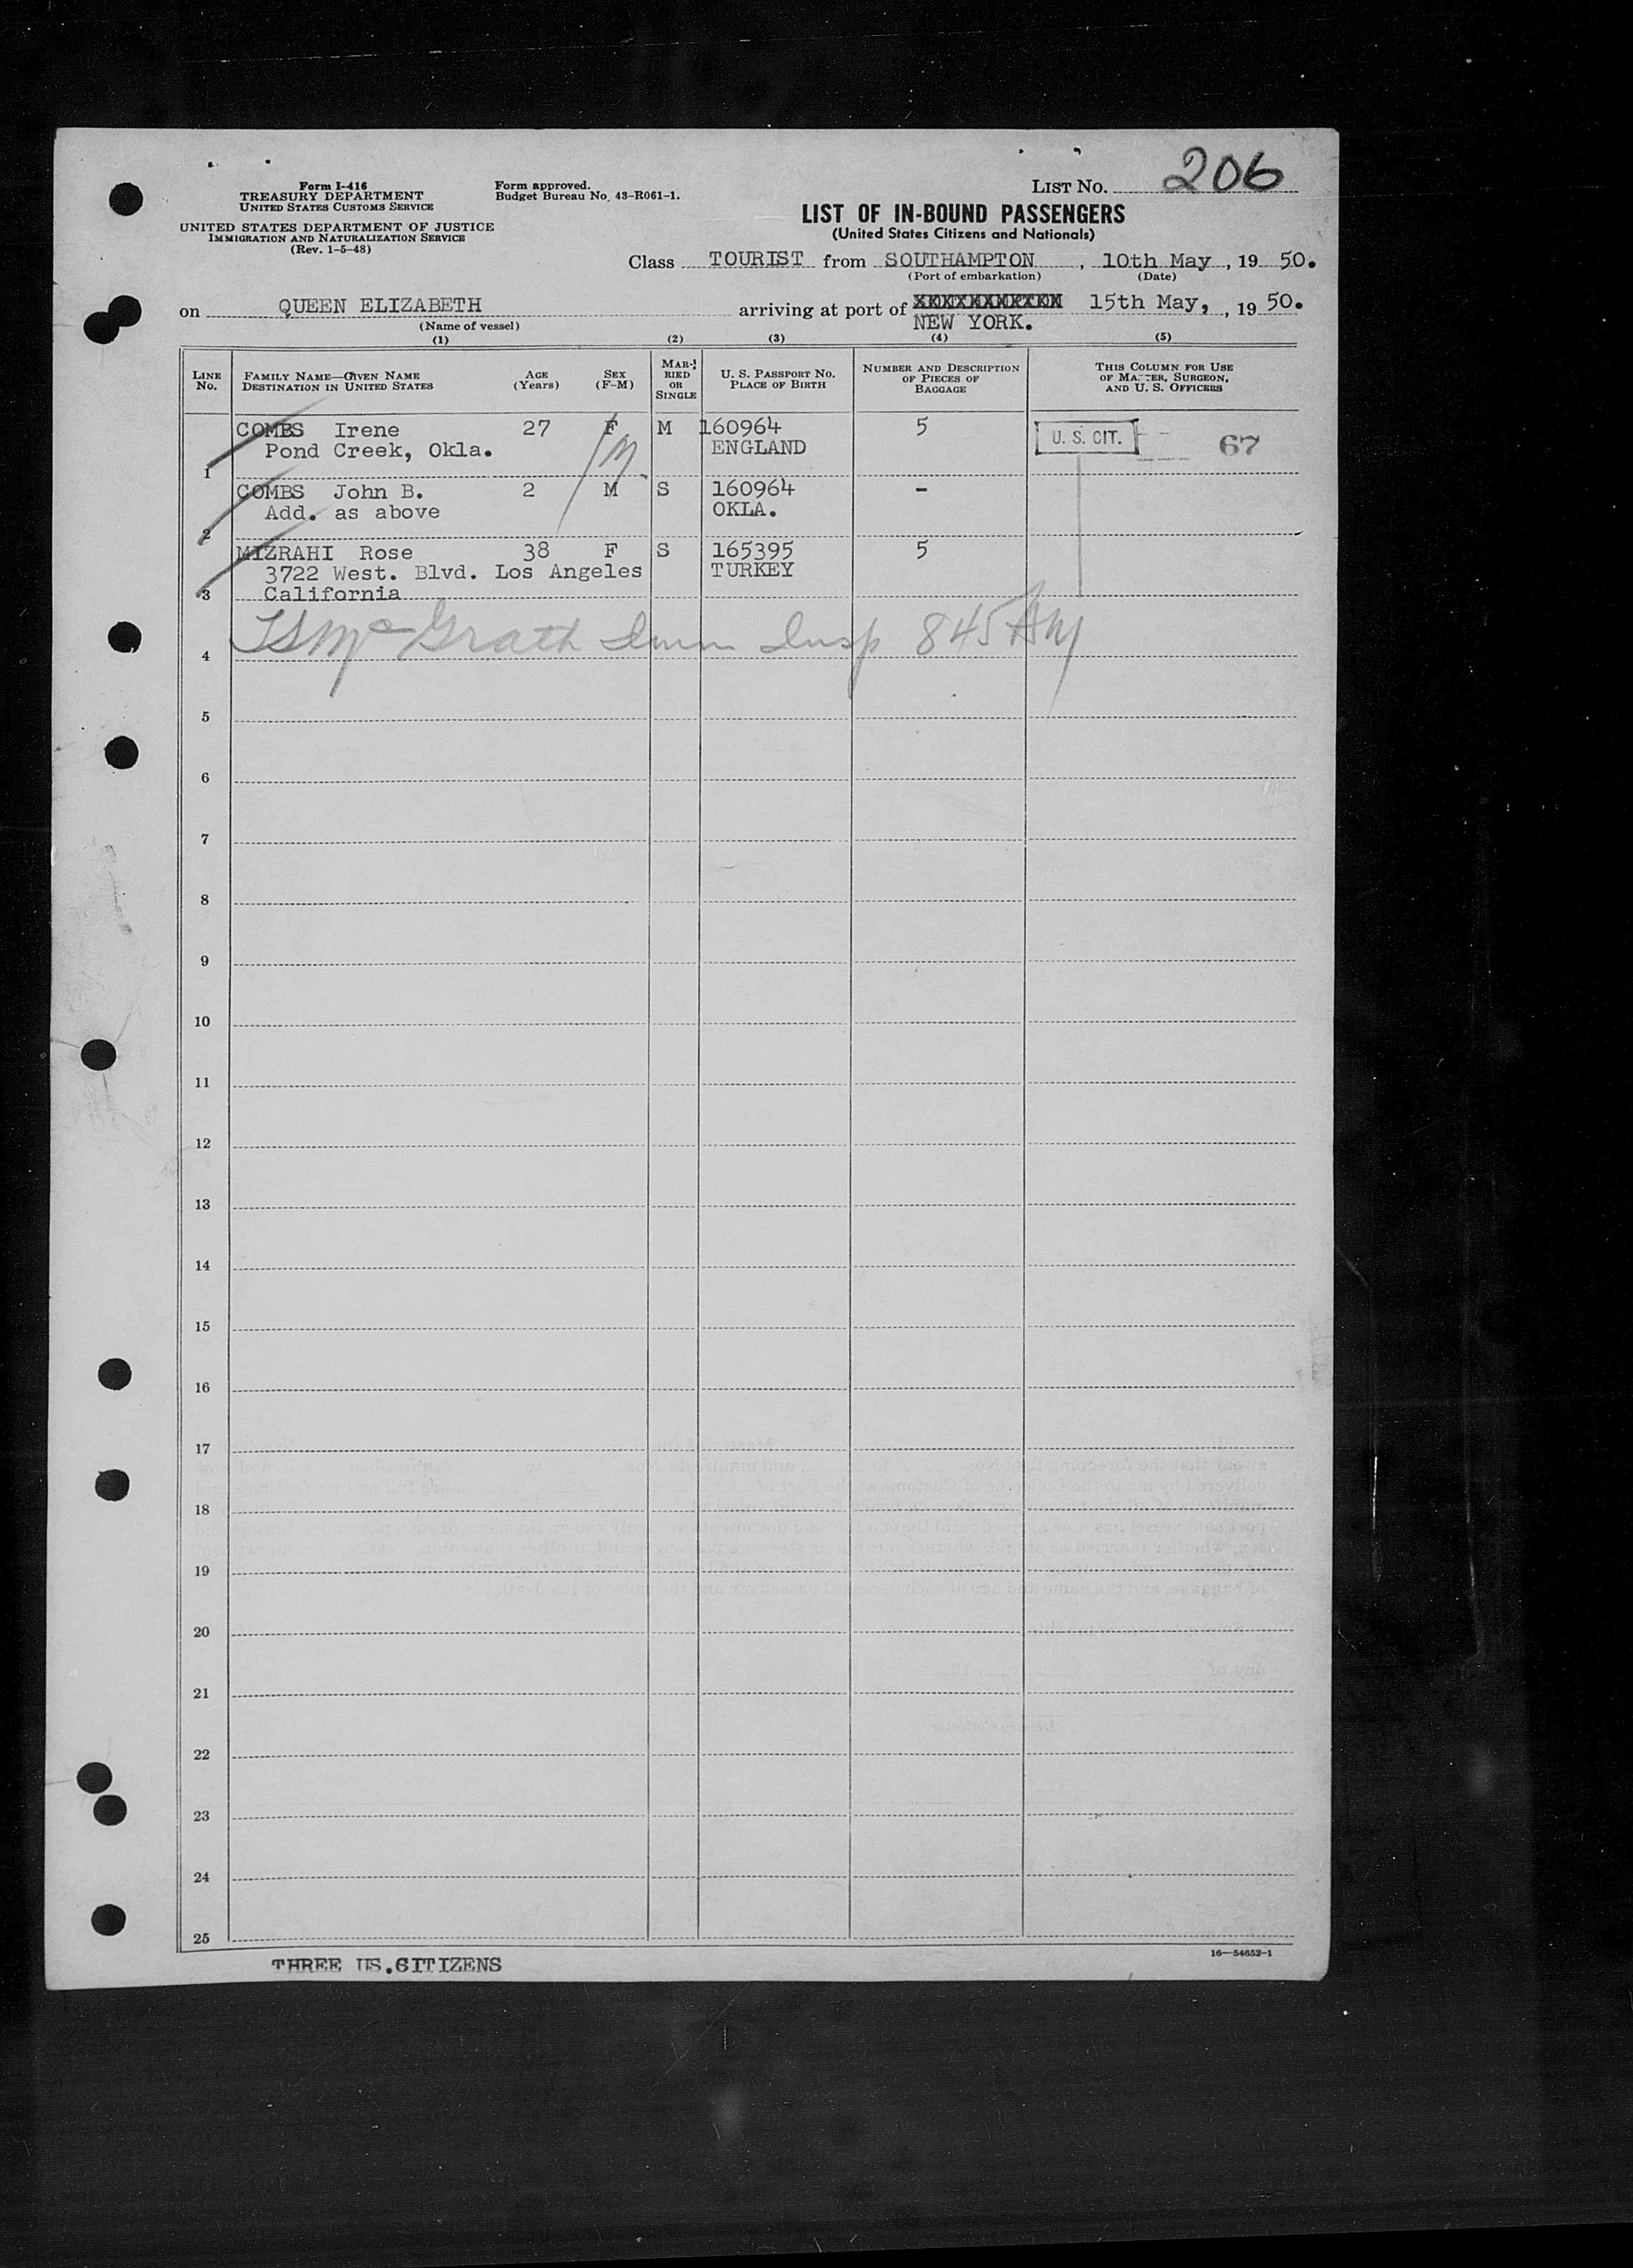 Form I-416
TREASURY DEPARTMENT
UNITED STATES CUSTOMS SERVICE
UNITED STATES DEPARTMENT OF JUSTICE
IMMIGRATION AND NATURALIZATION SERVICE
(Rev. 1-5-48)
Form approved.
Budget Bureau No. 43-R061-1.
LIST NO. 206
LIST OF IN-BOUND PASSENGERS
(United States Citizens and Nationals)
Class TOURIST from SOUTHAMPTON, 10th May, 19 50.
(Port of embarkation) (Date)
on QUEEN ELIZABETH arriving at port of 15th May, , 19 50.
(Name of vessel) NEW YORK.
(1) (2) (3) (4) (5)
LINE No. FAMILY NAME—GIVEN NAME DESTINATION IN UNITED STATES AGE (Years) SEX (F-M) MARRIED OR SINGLE U. S. PASSPORT NO. PLACE OF BIRTH NUMBER AND DESCRIPTION OF PIECES OF BAGGAGE THIS COLUMN FOR USE OF MASTER, SURGEON, AND U. S. OFFICERS
COMBS Irene 27 F M 160964 5 U. S. CIT. 67
Pond Creek, Okla. M ENGLAND
1
COMBS John B. 2 M S 160964 -
Add. as above OKLA.
2
MIZRAHI Rose 38 F S 165395 5
3722 West. Blvd. Los Angeles TURKEY
3 California
McGrath Imm Insp 845 AM
4
5
6
7
8
9
10
11
12
13
14
15
16
17
18
19
20
21
22
23
24
25
THREE US.CITIZENS
16—54652-1